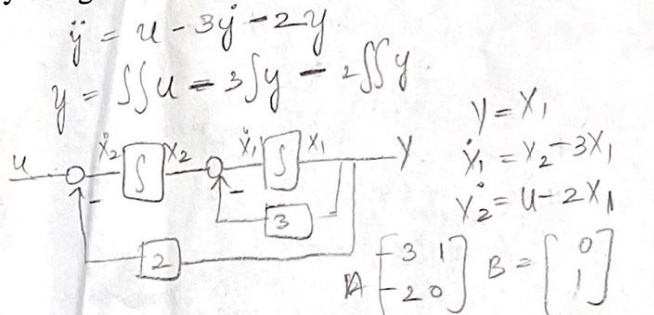 ÿ = u - 3ẏ - 2y
y = ∫∫u - 3∫y - 2∫∫y
u ẋ₂ ∫ x₂ ẋ₁ ∫ x₁ y
- -
3
2
y = x₁
ẋ₁ = x₂ - 3x₁
ẋ₂ = u - 2x₁
A [-3 1
-2 0] B = [0
1]